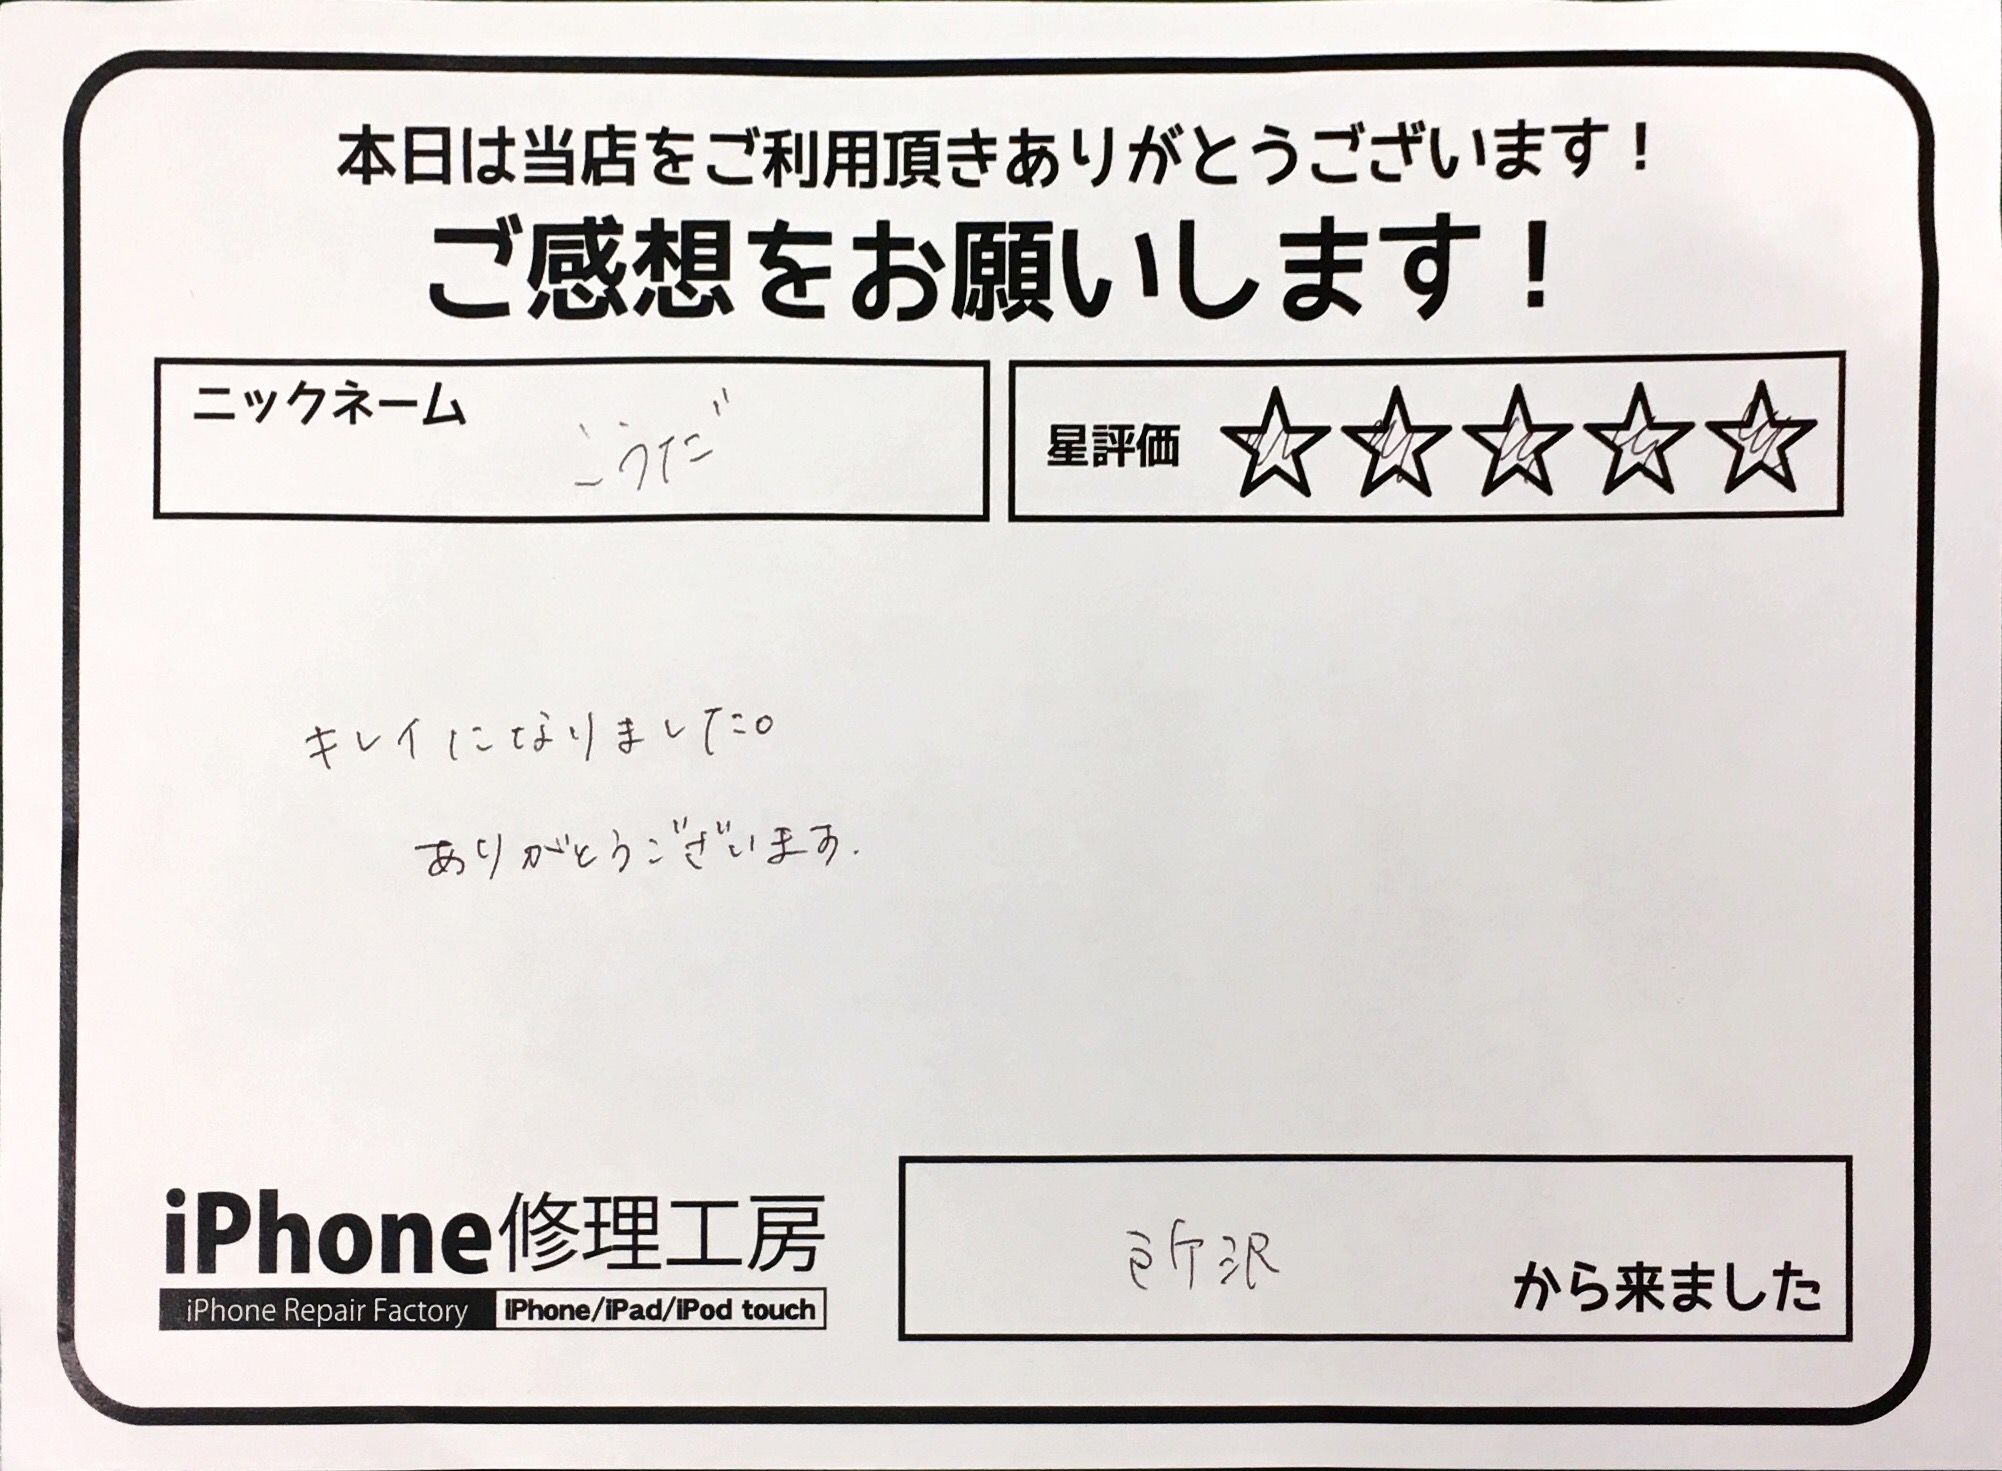 本日は当店をご利用頂きありがとうございます！
ご感想をお願いします！
ニックネーム こうだ
星評価 ☆☆☆☆☆
キレイになりました。
ありがとうございます.
iPhone修理工房
iPhone Repair Factory iPhone/iPad/iPod touch
所沢 から来ました